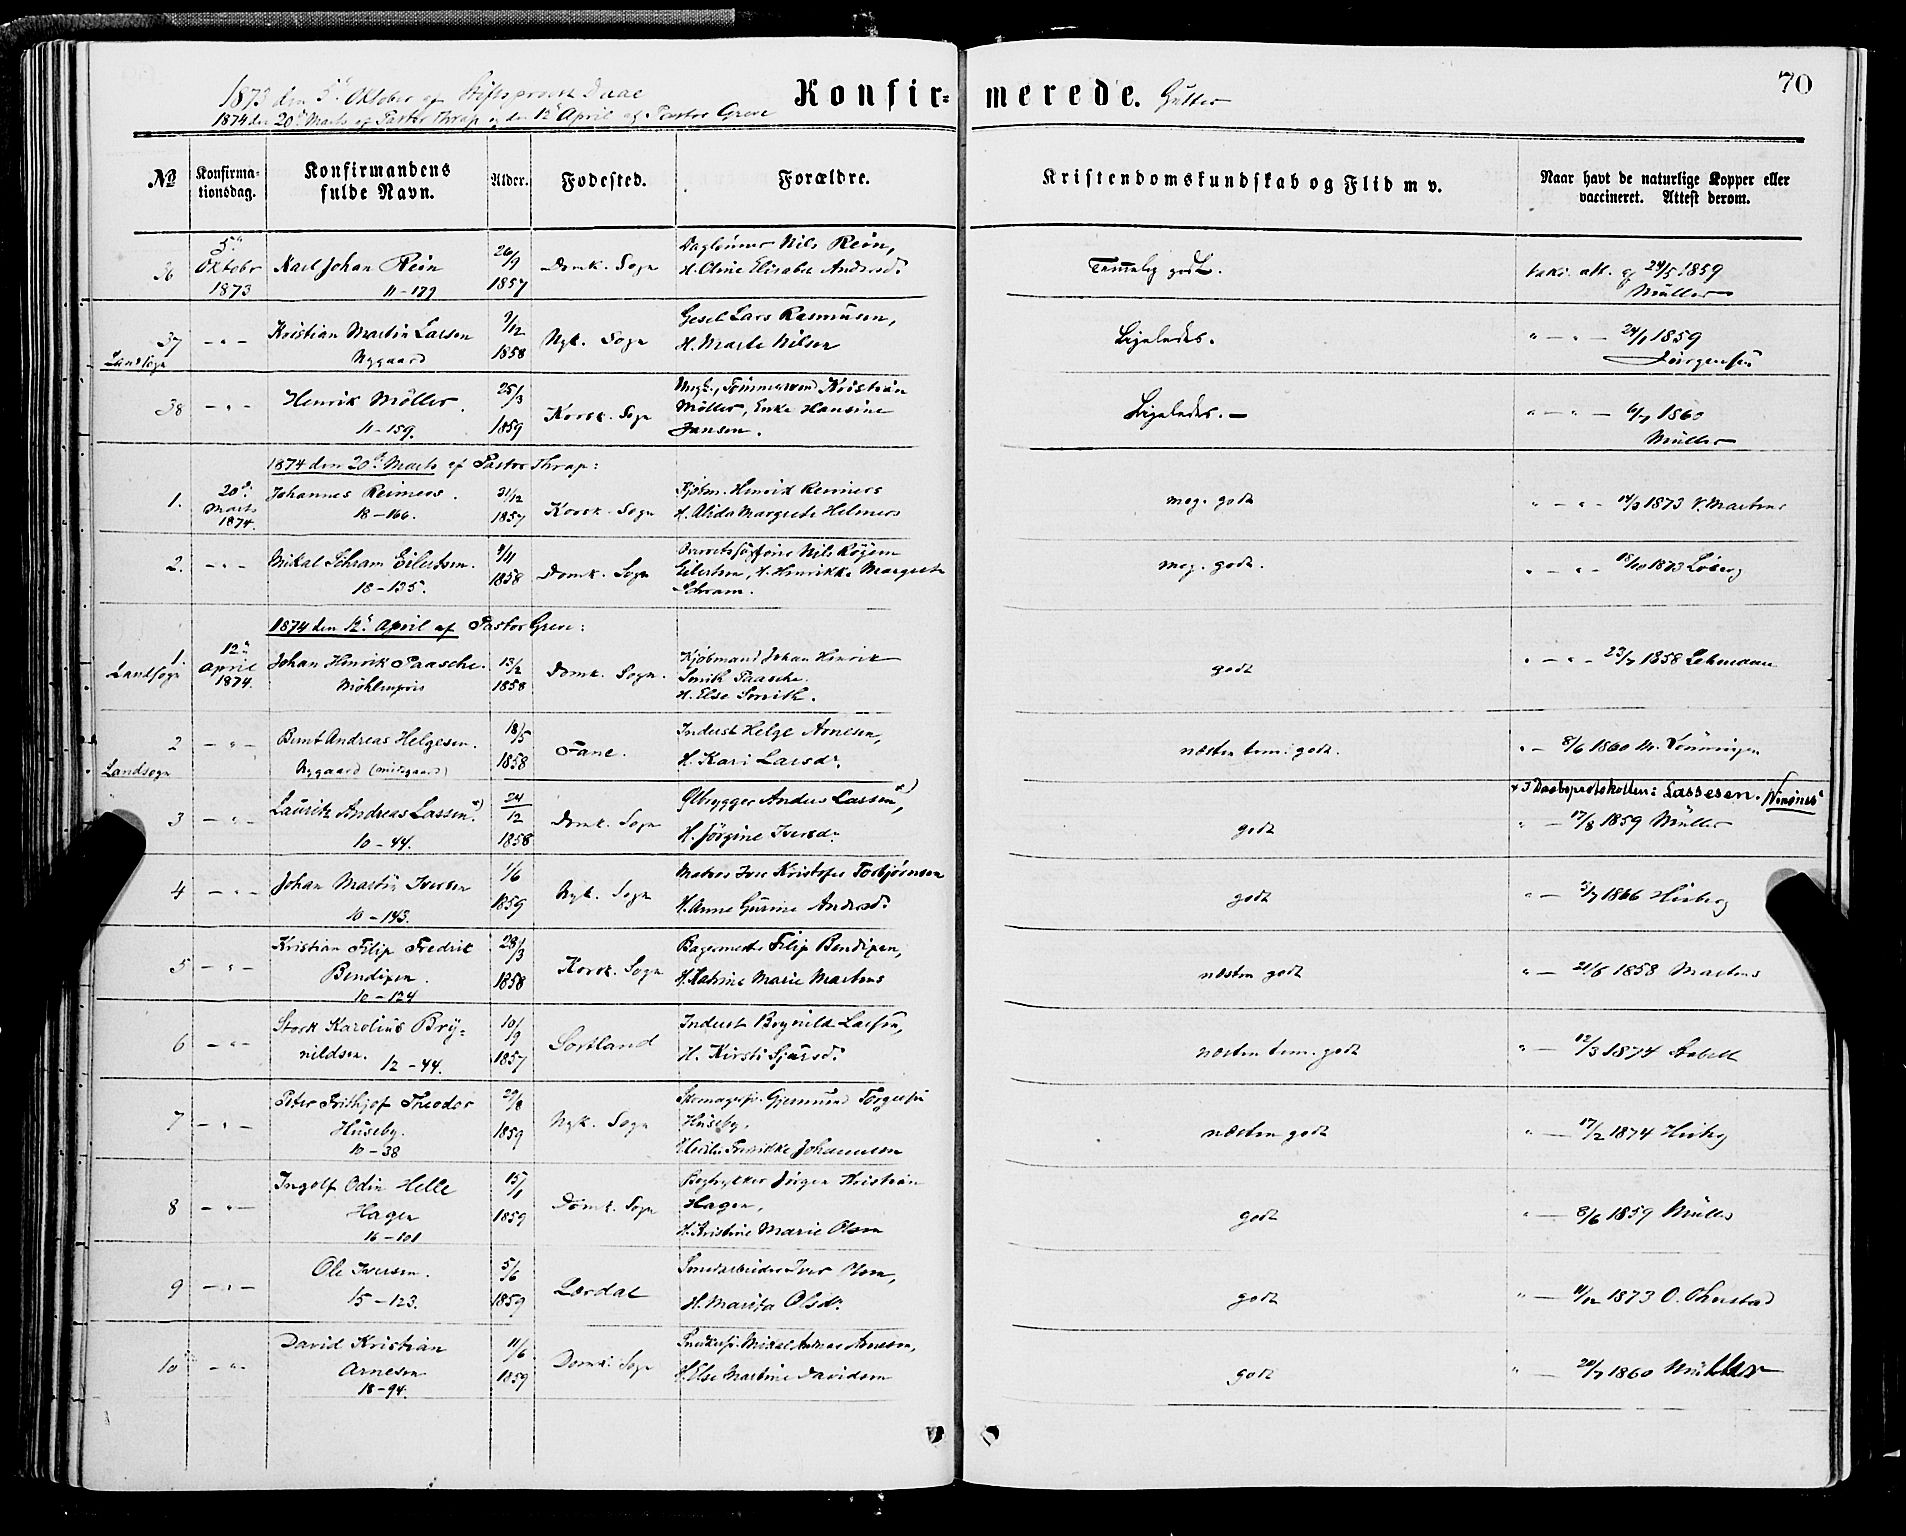 1873 den 5' Oktober af Stiftsprovst Daae
1874 den 20' Marts af Pastor Thrap og den 12' April af Pastor Greve
Konfirmerede. Gutter
70
№
Konfirmationsdag.
Konfirmandens fulde Navn.
Alder.
Fødested.
Forældre.
Kristendomskundskab og Flid m v.
Naar havt de naturlige Kopper eller
vaccineret. Attest derom.
36 5' Oktobr 1873 Karl Johan Rein 11-179 26/9 1857 Domk. Sogn
Nils Rein,
H. Oline Elisabet Andersd.
Temmelig godt.
vakc. att. af 24/5 1859
Müller
37 Landsogn -"- Kristian Martin Larsen
Nygaard
9/12 1858 Nyk. Sogn
Gesel Lars Rasmusen,
H. Marte Nilsen
Ligeledes.
" - " - 24/1 1859
Jørgensen
38 -"- Henrik Möller.
11-159.
25/3 1859 Korsk. Sogn
Kristian
Möller, Enke Hansine
Jansen.
Ligeledes. -
" - " - 6/7 1860
Müller
1874 den 20' Marts af Pastor Thrap:
1. 20' Marts 1874. Johannes Reimers.
18-166.
31/12 1857 Korsk. Sogn
Kjøbm. Henrik Reimers
H. Alida Margrete Helmers
meg. godt
" - " - 14/3 1873 V. Martens
2. -"- Mikal Schram Eilertsen.
18-135.
4/11 1858 Domk. Sogn
Nils Røyem
Eilertsen, H. Henrikke Margrete
Schram.
meg. godt.
" - " - 18/10 1873 Løberg
1874 den 12' April af Pastor Greve:
1 Landsogn 12' April 1874. Johan Henrik Paasche.
Möhlenpris
13/2 1858 Domk. Sogn.
Kjøbmand Johan Henrik
Smith Paasche.
H. Else Smith.
godt
" - " - 23/7 1858 Lehmann
2 Landsogn -"- Bernt Andreas Helgesen.
Nygaard
18/5 1858 Fane.
Inderst Helge Arnesen,
H. Kari Larsdr.
næsten tem: godt.
" - 8/6 1860
x I Daabsprotokollen: Lassesen.
3 -"- Lauritz Andreas Lassen x)
10-44.
24/12 1858 Domk. Sogn
Ølbrygger Anders Lassen x),
H. Jörgine Iversdr.
godt
" - 17/8 1859 Müller
4 -"- Johan Martin Iversen
10-143.
1/6 1859 Nyk. Sogn
Matros Iver Kristofer Torbjørnsen
H. Anne Gurine Andersd.
godt
" - 3/7 1866
5 -"- Kristian Filip Fredrik
Bendixen.
10-124
28/3 1858 Korsk. Sogn
Bagermester Filip Bendixen,
H. Katrine Marie Martens
næsten godt
" - 21/6 1858 Martens
6 -"- Stork Karolius Bry=
nildsen. 12-44.
10/9 1857 Sortland
Inderst Brynild Larsen,
H. Kirsti Sjursd.
næsten tem. godt
" - 12/3 1874 Stabell
7 -"- Peter Frithjof Theodor
Huseby.
10-38
29/8 1859 Nyk. Sogn
Skomagersv. Gjermund Torgersen
Huseby,
Johannesen
næsten godt
" - 17/2 1874
8 -"- Ingolf Odin Helle
Hagen
16-101
15/1 1859 Domk. Sogn
Bogtrykker Jörgen Kristian
Hagen,
H. Kristine Marie Olsen
godt
" - 8/6 1859 Müller
9 -"- Ole Iversen.
15-123.
5/6 1859 Lærdal
H. Marita Olsdr.
godt
" - 11/12 1873 O. Ohnstad
10 -"- David Kristian
Arnesen
18-94.
11/6 1859 Domk. Sogn
Snedkersv. Mikal Andreas Arnesen,
H. Else Martine Davidsen
godt
" - 20/7 1860 Müller